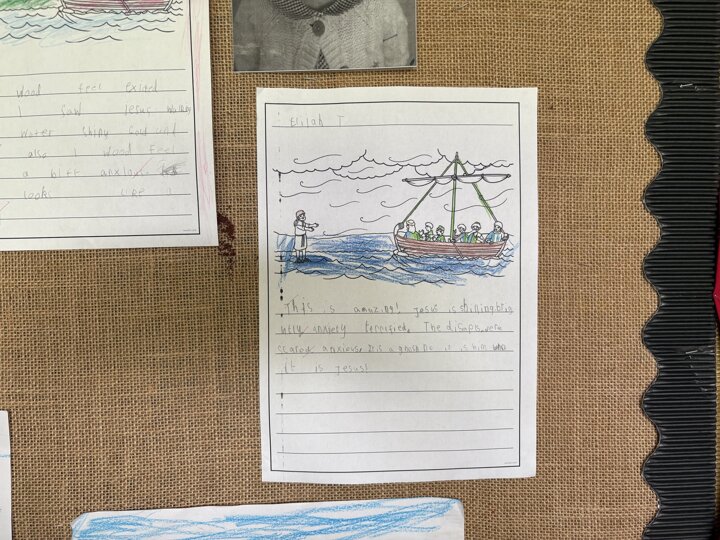 wood feel exied
I saw Jesus walking
water shiny
also I wood feel
a bitt anxious
looks like
Elilah T
This is amazing! Jesus is shining brig
htly anxiety terrified. The disapls were
scared anxious. It is a ghost no it is him
it is Jesus!